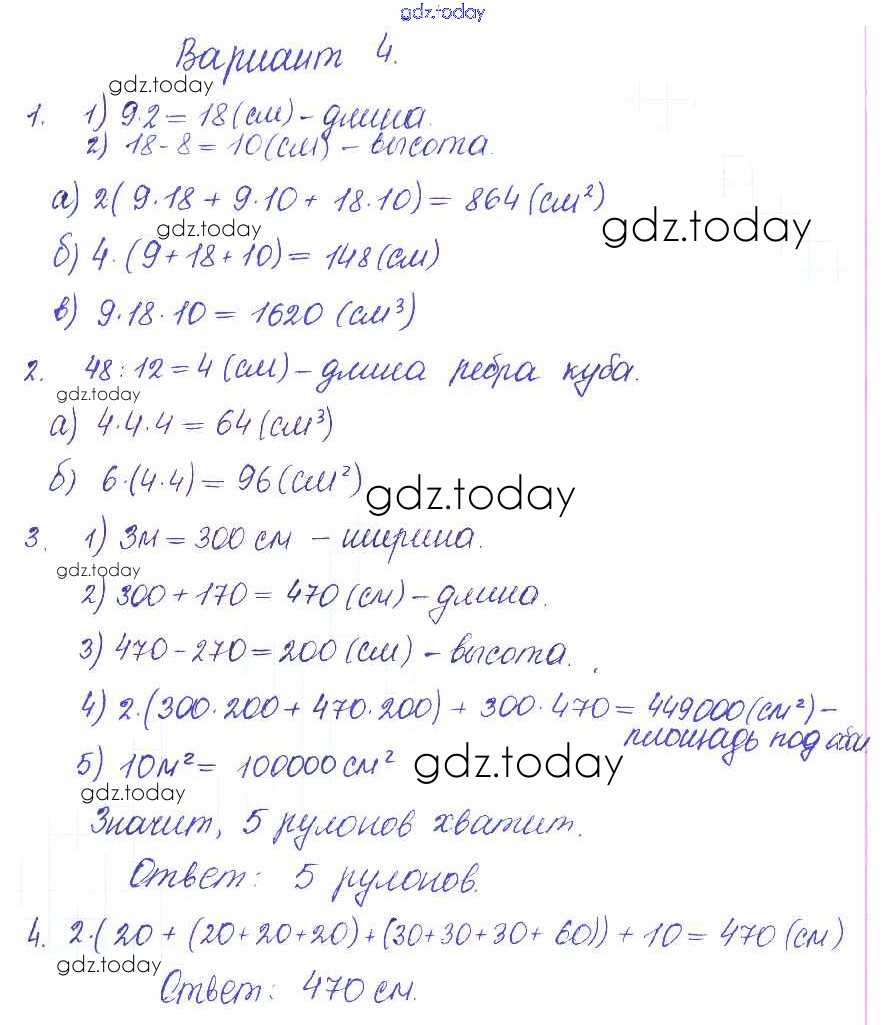 gdz.today
Вариант 4.
gdz.today
1. 1) 9·2 = 18 (см) – длина.
2) 18 - 8 = 10 (см) – высота.
а) 2( 9·18 + 9·10 + 18·10) = 864 (см²)
gdz.today
gdz.today
б) 4·(9+18+10) = 148 (см)
в) 9·18·10 = 1620 (см³)
2. 48 : 12 = 4 (см) – длина ребра куба.
gdz.today
а) 4·4·4 = 64 (см³)
б) 6·(4·4) = 96 (см²)
gdz.today
3. 1) 3м = 300 см – ширина.
gdz.today
2) 300 + 170 = 470 (см) – длина.
3) 470 - 270 = 200 (см) – высота.
4) 2·(300·200 + 470·200) + 300·470 = 449000 (см²) –
площадь под обои
5) 10м² = 100000 см²
gdz.today
gdz.today
Значит, 5 рулонов хватит.
Ответ: 5 рулонов.
4. 2·( 20 + (20+20+20) + (30+30+30+ 60)) + 10 = 470 (см)
gdz.today
Ответ: 470 см.